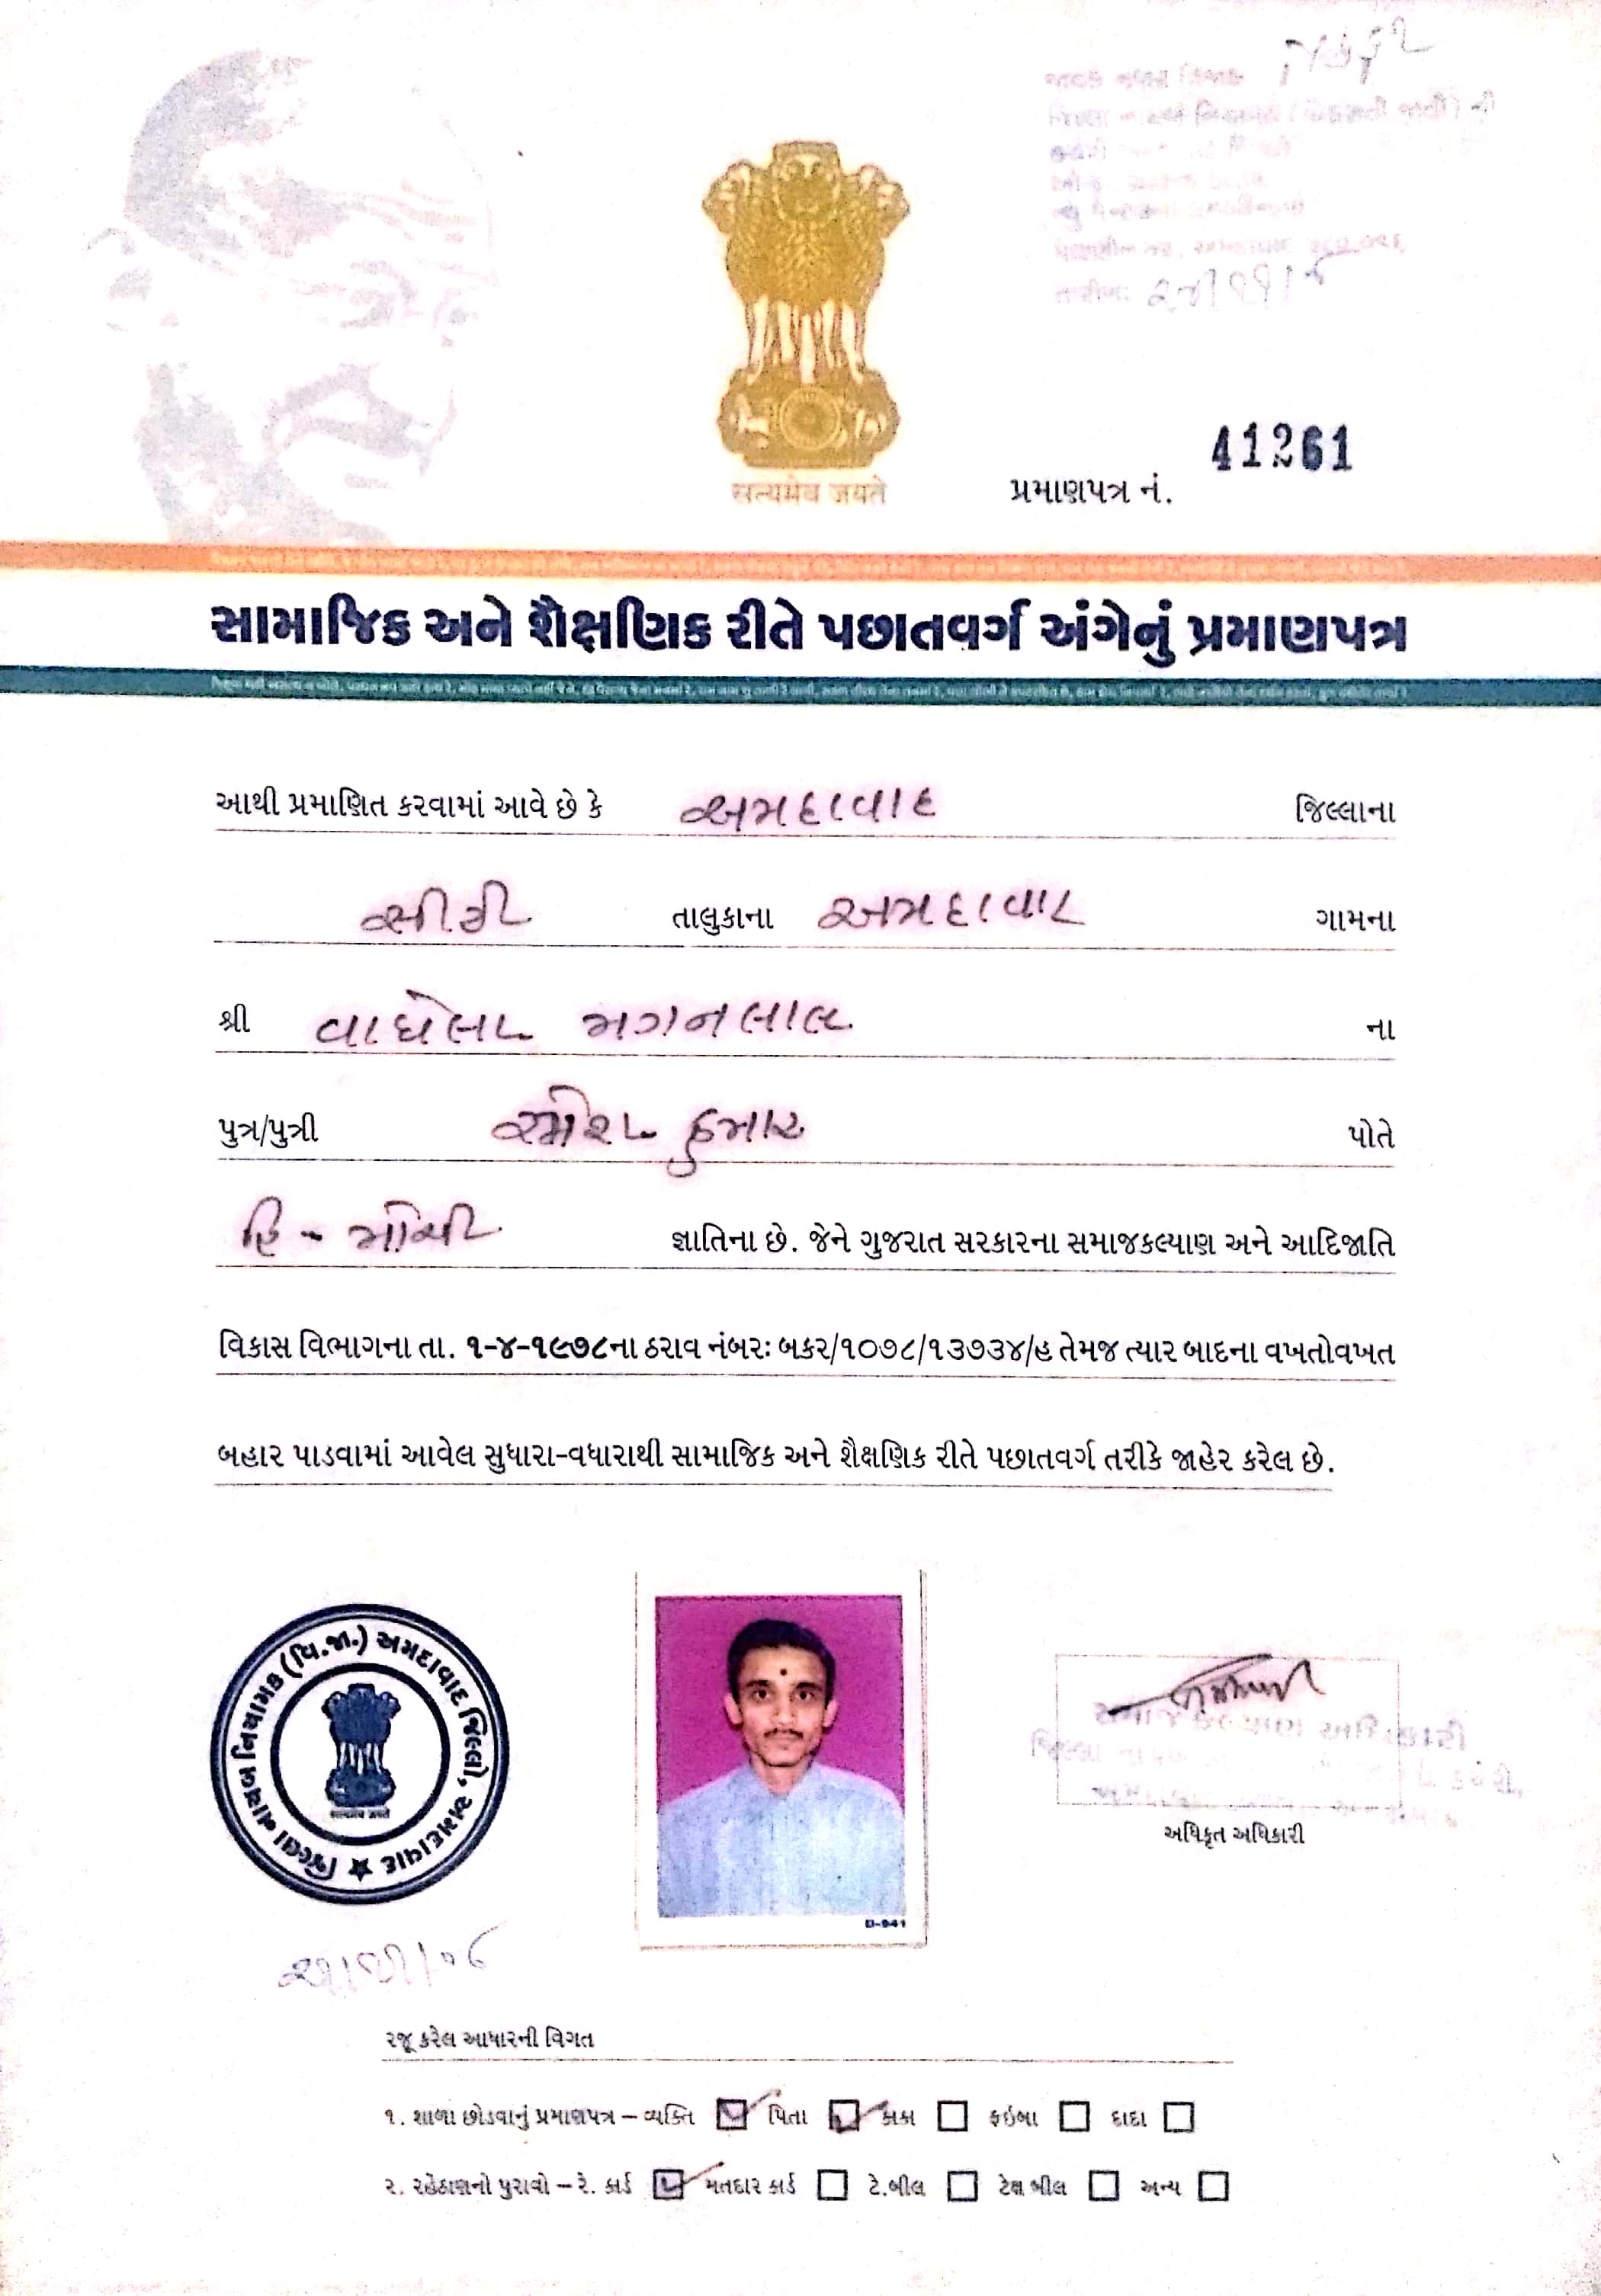 સત્યમેવ જયતે
41261
પ્રમાણપત્ર નં.
સામાજિક અને શૈક્ષણિક રીતે પછાતવર્ગ અંગેનું પ્રમાણપત્ર
આથી પ્રમાણિત કરવામાં આવે છે કે અમદાવાદ જિલ્લાના
સીટી તાલુકાના અમદાવાદ ગામના
શ્રી વાઘેલા મગનલાલ ના
પુત્ર/પુત્રી રમેશ કુમાર પોતે
હિ - મોચી જ્ઞાતિના છે. જેને ગુજરાત સરકારના સમાજકલ્યાણ અને આદિજાતિ
વિકાસ વિભાગના તા. ૧-૪-૧૯૭૮ના ઠરાવ નંબરઃ બકર/૧૦૭૮/૧૩૭૩૪/હ તેમજ ત્યાર બાદના વખતોવખત
બહાર પાડવામાં આવેલ સુધારા-વધારાથી સામાજિક અને શૈક્ષણિક રીતે પછાતવર્ગ તરીકે જાહેર કરેલ છે.
જિલ્લા નાયબ નિયામક (વિ.જા.) અમદાવાદ જિલ્લો, અમદાવાદ
D-941
અધિકૃત અધિકારી
રજૂ કરેલ આધારની વિગત
૧. શાળા છોડવાનું પ્રમાણપત્ર – વ્યક્તિ પિતા કાકા ફઇબા દાદા
૨. રહેઠાણનો પુરાવો – રે. કાર્ડ મતદાર કાર્ડ ટે.બીલ ટેક્ષ બીલ અન્ય